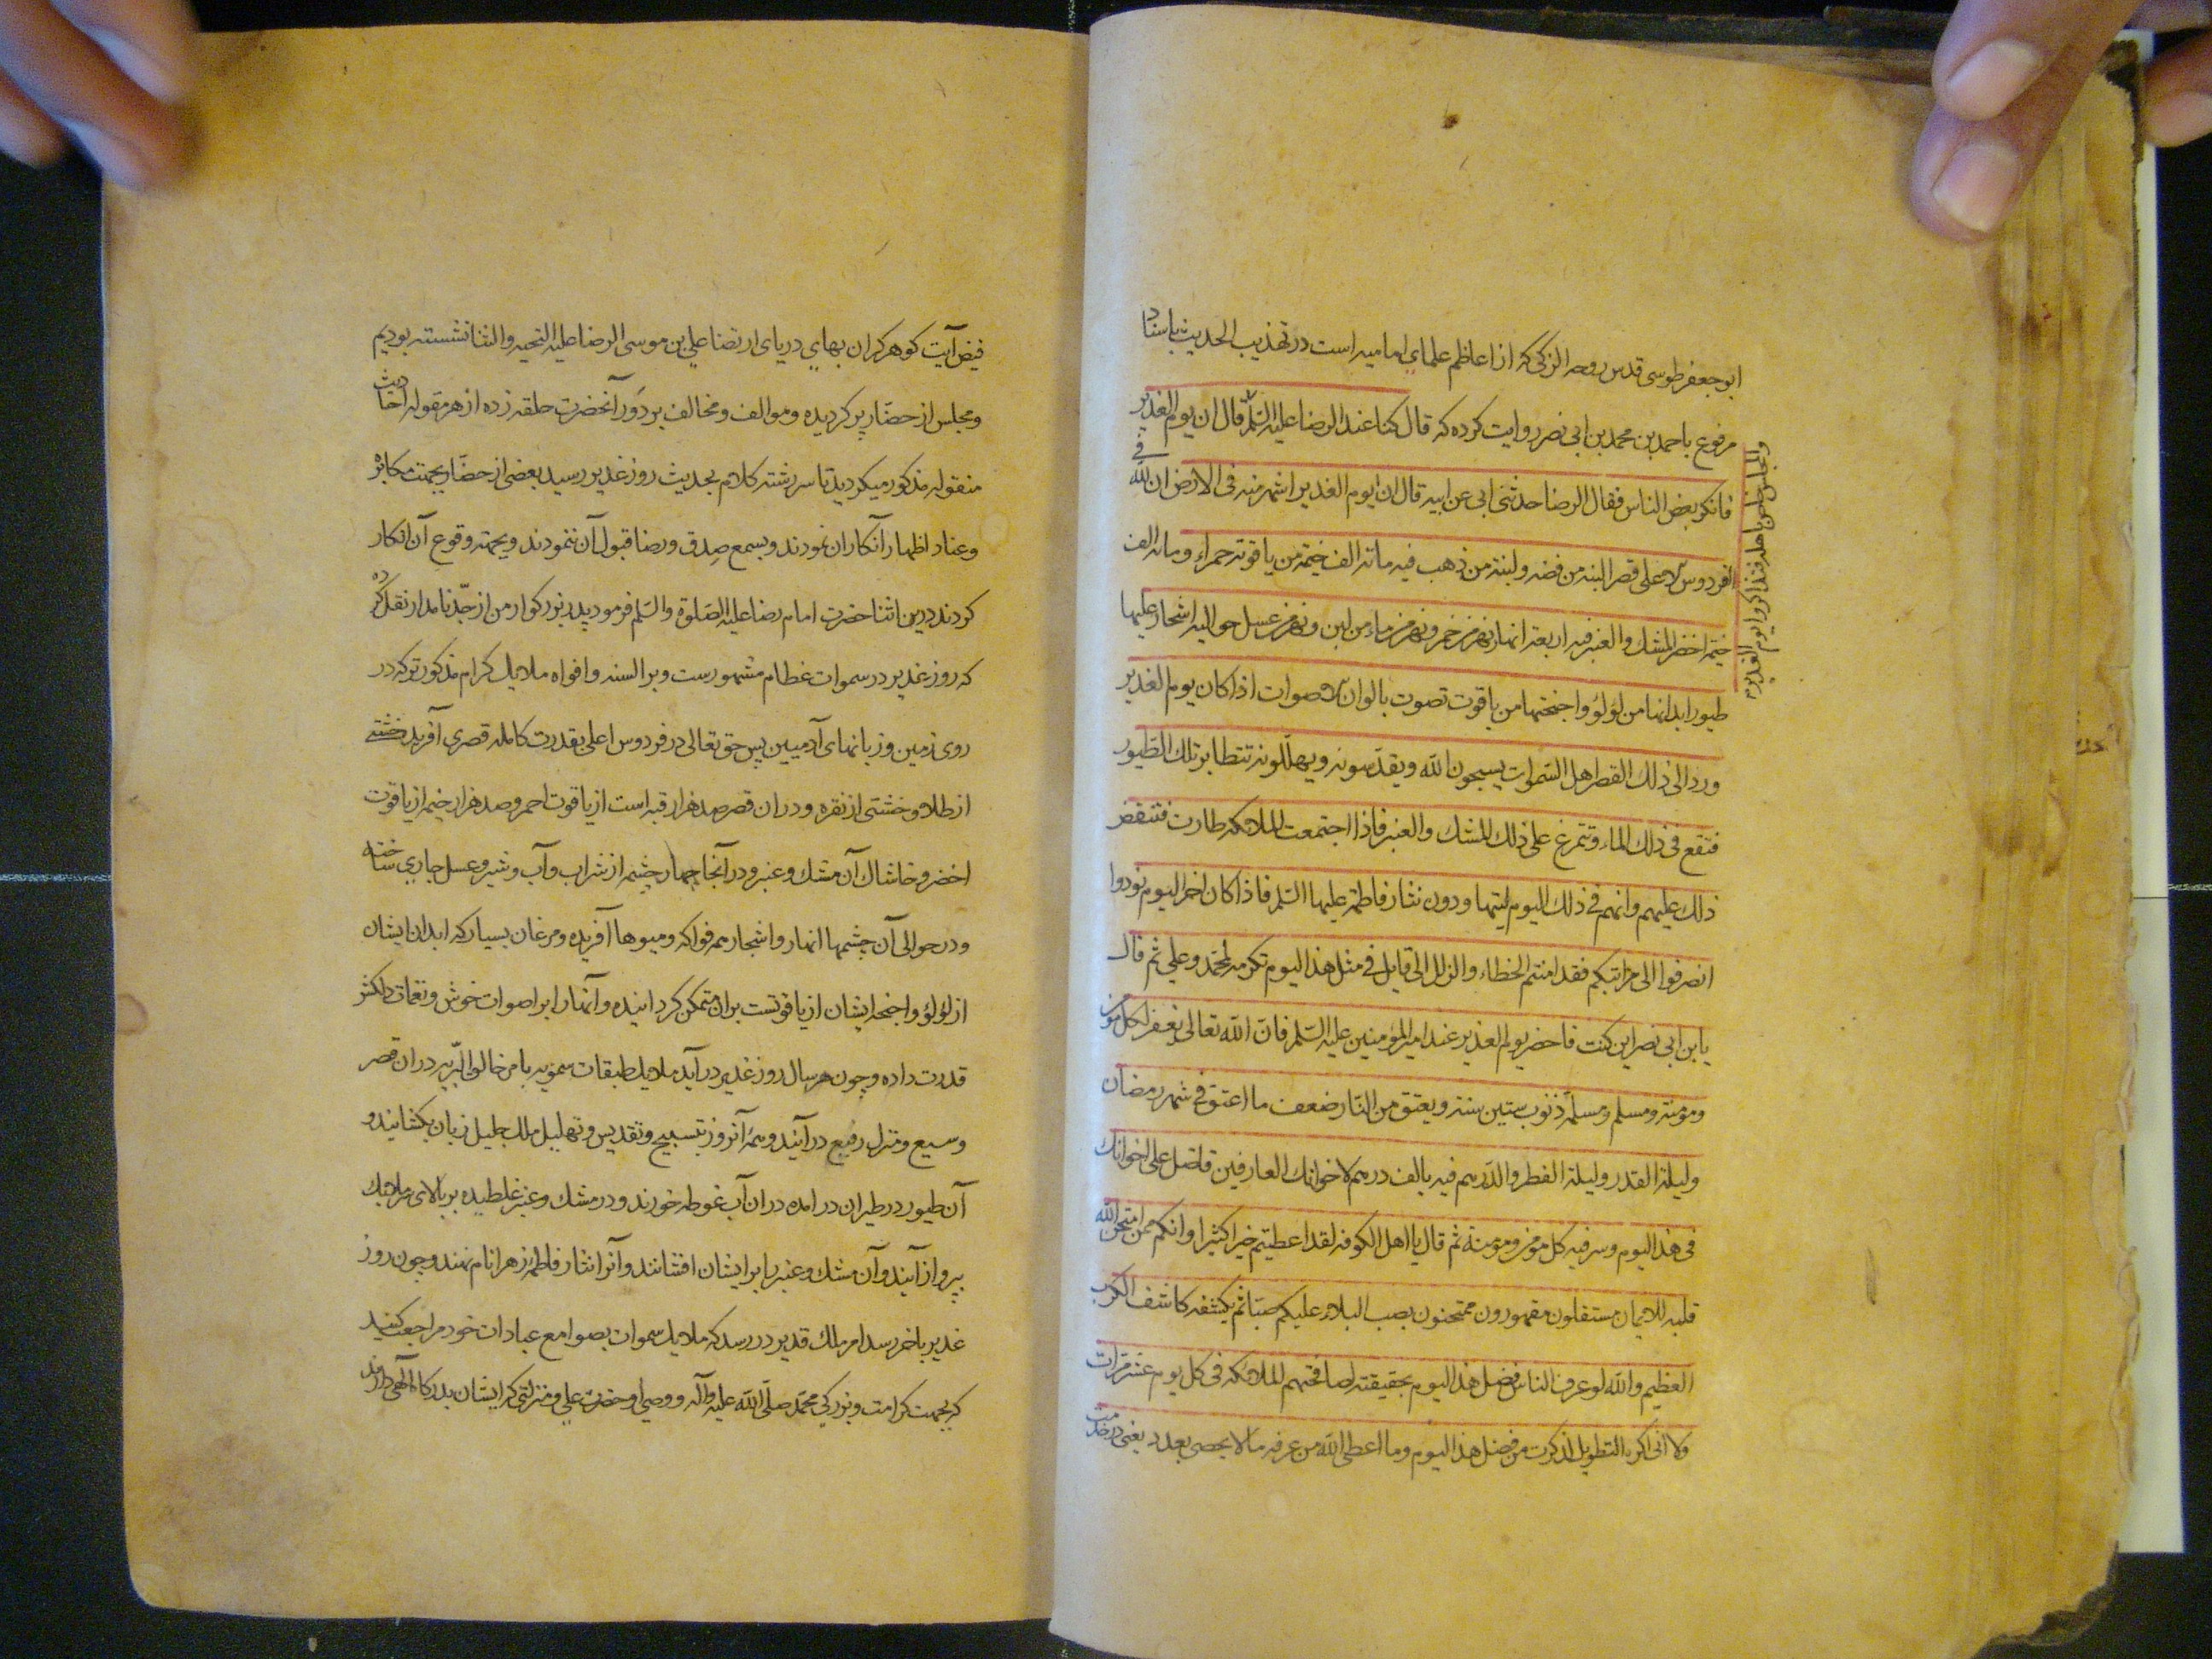 ابوجعفر طوسی قدس روحه الزکی که از اعاظم علمای امامیه است در تهذیب الحدیث باسناد
مرفوع باحمد بن محمد بن ابی نصر روایت کرده که قال کنا عند الرضا علیه السلم قال ان یوم الغدیر
والمجلس غاص باهله فتذاکروا یوم الغدیر
فانکر بعض الناس فقال الرضا حدثنی ابی عن ابیه قال ان یوم الغدیر اشهر منه فی الارض ان لله فی
الفردوس الاعلی قصرا لبنه من فضه ولبنته من ذهب فیه مائة الف خیمة من یاقوته حمراء ومائه الف
خیمه اخضر المشک والعنبر فیه اربعة انهار نهر من خمر ونهر من ماء من لبن ونهر من عسل حوالیه اشجار علیها
طیور ابدانها من لؤلؤ واجنحتها من یاقوت تصوت بالوان الاصوات اذا کان یوم الغدیر
ورد الی ذلک القصر اهل السموات یسبحون الله ویقدسونه ویهللونه تتطایر تلک الطیور
فتقع فی ذلک الماء وتتمرغ علی ذلک المشک والعنبر فاذا اجتمعت الملائکه طارت فتنقض
ذلک علیهم وانهم فی ذلک الیوم لیتهادون نثار فاطمة علیها السلم فاذا کان اخر الیوم نودوا
انصرفوا الی مراتبکم فقد امنتم الخطاء والزلل الی قابل فی مثل هذا الیوم تکرمه لمحمد وعلی ثم قال
یا بن ابی نصر این کنت فاحضر یوم الغدیر عند امیر المؤمنین علیه السلم فان الله تعالی یغفر لکل مؤمن
ومؤمنة ومسلم ومسلمة ذنوب ستین سنة ویعتق من النار ضعف ما اعتق فی شهر رمضان
ولیلة القدر ولیلة الفطر والدرهم فیه بالف درهم لاخوانک العارفین فافضل علی اخوانک
فی هذا الیوم وسر فیه کل مؤمن ومؤمنة ثم قال یا اهل الکوفه لقد اعطیتم خیرا کثیرا وانکم ممن امتحن الله
قلبه للایمان مستقلون مقهورون ممتحنون یصب البلاء علیکم صبا ثم یکشفه کاشف الکرب
العظیم والله لو عرف الناس فضل هذا الیوم بحقیقته لصافحتهم الملائکه فی کل یوم عشر مرات
ولا انی اکره التطویل لذکرت من فضل هذا الیوم وما اعطی الله من عرفه ما لا یحصی بعدد یعنی در خدمت
فیض آیت کوهر کران بهای دریای ارتضا علی بن موسی الرضا علیه التحیه والثنا نشسته بودیم
ومجلس از حضار پر کردیده وموالف ومخالف بر دور آنحضرت حلقه زده از هر مقوله احادیث
منقوله مذکور میکردید تا سررشته کلام بحدیث روز غدیر رسید بعضی از حضار بجهت مکابره
وعناد اظهار آنکار ان نمودند وبسمع صدق ورضا قبول آن ننمودند وبجهته وقوع آن انکار
کردند درین اثنا حضرت امام رضا علیه الصلوة والسلم فرمود پدر بزرکوار من از جد نامدار نقل کرده
که روز غدیر در سموات عظام مشهورست وبر السنه وافواه ملایک کرام مذکورتر که در
روی زمین وزبانهای آدمیین پس حق تعالی در فردوس اعلی بقدرت کامله قصری آفرید خشتی
از طلا وخشتی از نقره ودر ان قصر صد هزار قبه است از یاقوت احمر وصد هزار خیمه از یاقوت
اخضر وخاشاک آن مشک وعنبر ودر آنجا چهار چشمه از شراب وآب وشیر وعسل جاری ساخته
ودر حوالی آن چشمها انهار واشجار همه فواکه ومیوها آفریده ومرغان بسیار که ابدان ایشان
از لؤلؤ واجنحه ایشان از یاقوتست بران متمکن کردانیده وآنها را بر اصوات خوش ونغمات دلکش
قدرت داده وچون هر سال روز غدیر در آید ملایک طبقات سمویه بامر خالق البریه در ان قصر
وسیع ومنزل رفیع در آیند وهمه آنروز بتسبیح وتقدیس وتهلیل ملک جلیل زبان بکشایند و
آن طیور در طیران در امده در ان آب غوطه خورند ودر مشک وعنبر غلطیده بر بالای ملایک
پرواز آیند وآن مشک وعنبر را بر ایشان افشانند وآنرا نثار فاطمه زهرا نام نهند وچون روز
غدیر باخر رسد امر ملک قدیر در رسد که ملایک سموات بصوامع عبادات خود مراجعت کنید
که بجهت کرامت وبزرکی محمد صلی الله علیه وآله ووصی او حضرت علی ومنزلتی که ایشان بدرکاه الهی دارند